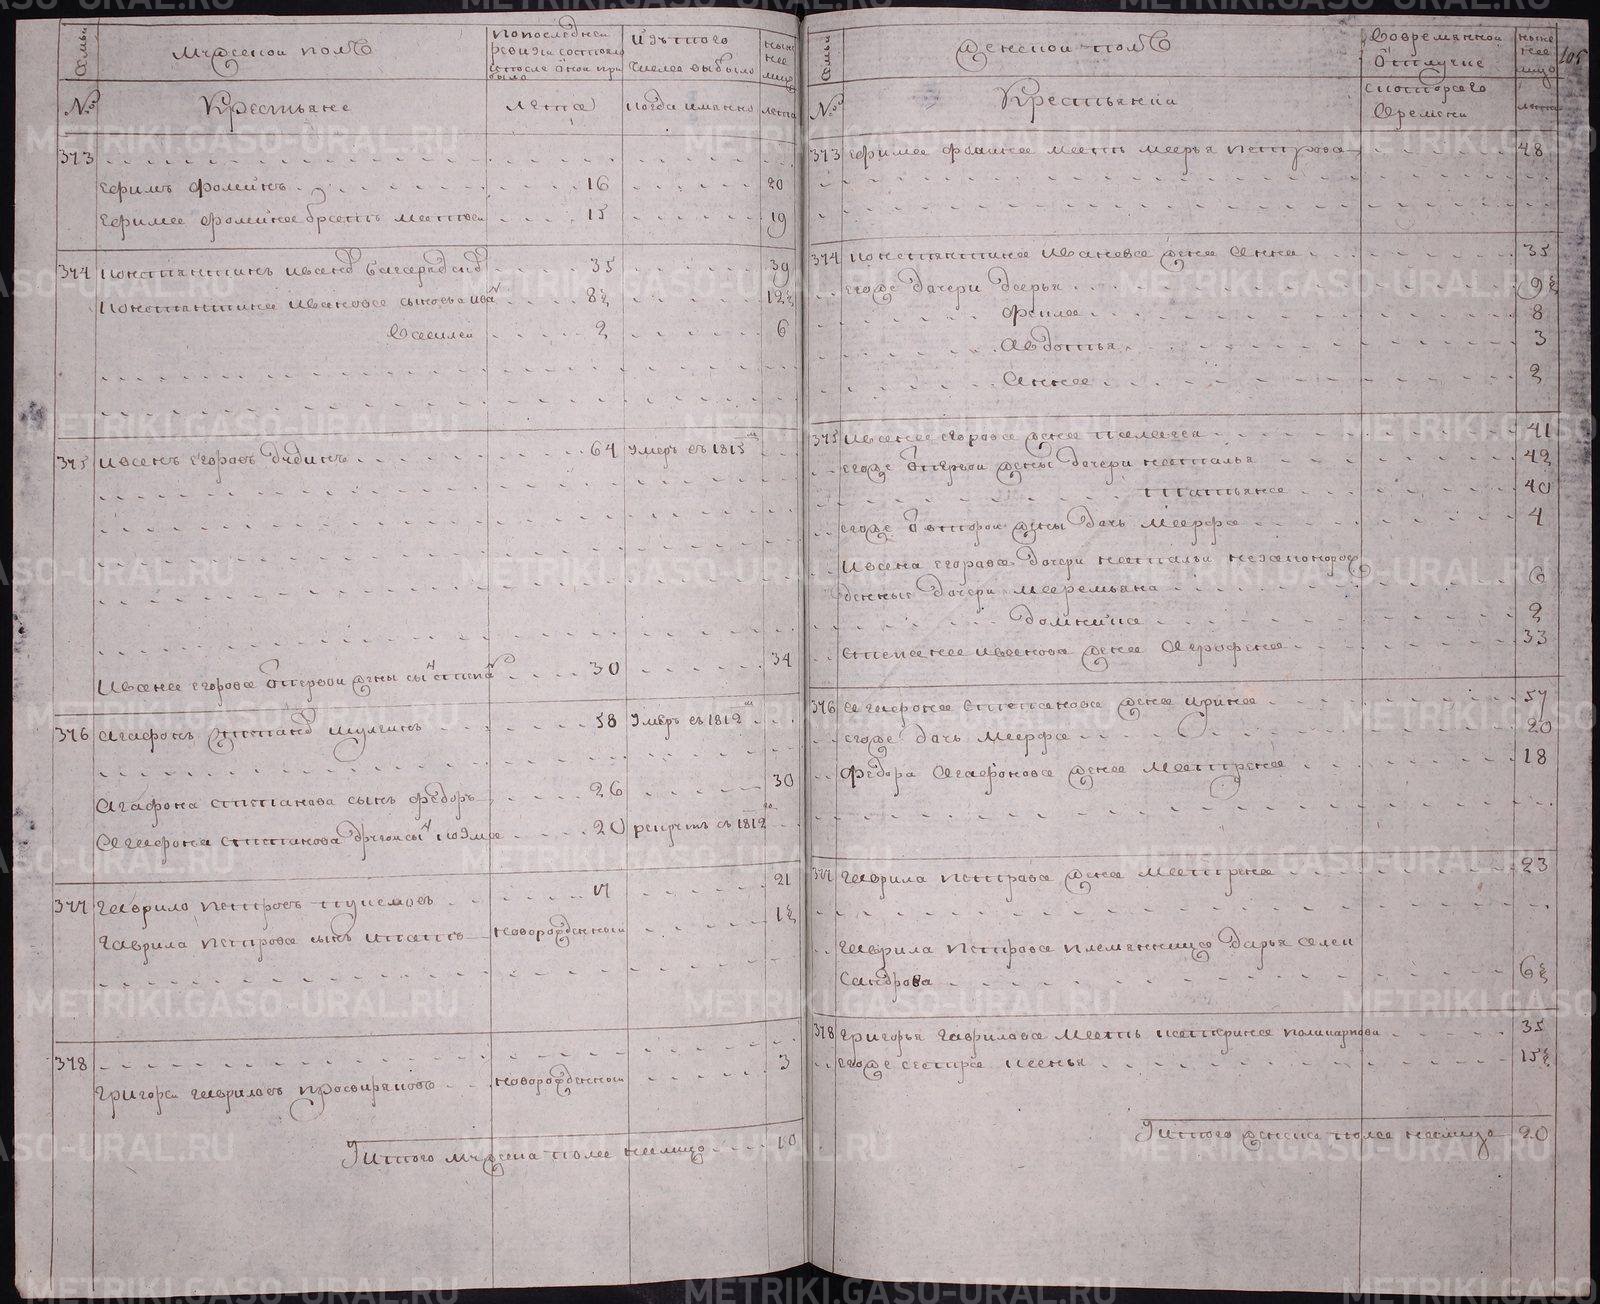 Семьи
Мужеской полъ
по последней
ревизіи состояло
и после оной при
было
Изътого
числа выбыло
ныне
нее
лицо
№
Крестьяне
лета
когда имянно
лета
373
Ефимъ Фоминъ 16 20
Ефима Фомина братъ Матвей 15 19
374 Константинъ Иванов 35 39
Константина Иванова сыновья Иван 8½ 12½
Василей 2 6
375 Иванъ Егоровъ Дудинъ 64 умеръ въ 1815м
Ивана Егорова от первой жены сын Степан 30 34
376 Агафонъ Степанов Шулгинъ 58 умеръ въ 1812м
Агафона Степанова сынъ Федоръ 26 30
Агафона Степанова другой сын 20 рекрутъ въ 1812
377 Гаврило Петровъ 17 21
Гаврила Петрова сынъ Игнатъ новорожденный 1½
378
Григорей Гавриловъ Просвиряковъ новорожденный 3
Итого мужеска пола налицо 10
Семьи
Женской полъ
Вовременной
отлучке
ныне
нее
лицо
105
№
Крестьянки
скоторого
времени
лета
373 Ефима Фомина мать Марья Петрова 48
374 Константина Иванова жена Анна 35
егоже дочери Дарья 9½
Фекла 8
Авдотья 3
Анна 2
375 Ивана Егорова жена Пелагея 41
егоже от первой жены дочери Наталья 42
Татьяна 40
егоже от второй жены дочь Марфа 4
Ивана Егорова дочери Натальи незаконорож
денные дочери Маремьяна 6
Домника 2
Степана Иванова жена Аграфена 33
376 Агафона Степанова жена Ирина 57
егоже дочь Марфа 20
Федора Агафонова жена Матрена 18
377 Гаврила Петрова жена Матрена 23
Гаврила Петрова племянница Дарья Алек
сандрова 6½
378 Григорья Гаврилова мать Катерина Поликарпова 35
егоже сестра Ксенья 15½
Итого женска пола налицо 20
METRIKI.GASO-URAL.RU